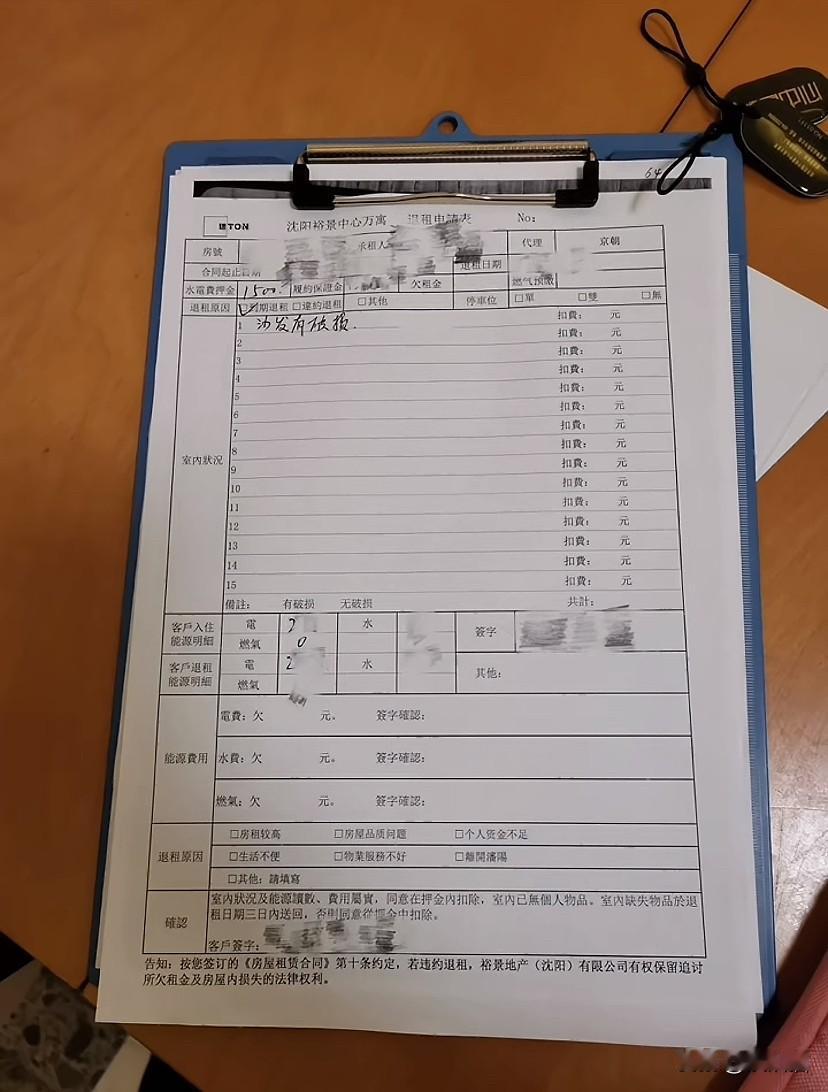 64
TON 沈阳裕景中心万寓 退租申請表 No:
房號 承租人 代理 京朝
合同起止日期 退租日期
水電費押金 1500. 履約保證金 欠租金 燃气预缴
退租原因 ☑到期退租 □違約退租 □其他 停車位 □單 □雙 □無
室內狀況
1 沙发有破損. 扣費: 元
2 扣費: 元
3 扣費: 元
4 扣費: 元
5 扣費: 元
6 扣費: 元
7 扣費: 元
8 扣費: 元
9 扣費: 元
10 扣費: 元
11 扣費: 元
12 扣費: 元
13 扣費: 元
14 扣費: 元
15 扣費: 元
備註: 有破损 无破损 共計:
客戶入住能源明細 電 水 簽字
燃氣 0
客戶退租能源明細 電 2 水 其他:
燃氣
能源費用
電費: 欠 元。 簽字確認:
水費: 欠 元。 簽字確認:
燃氣: 欠 元。 簽字確認:
退租原因
□房租较高 □房屋品质问题 □个人资金不足
□生活不便 □物業服務不好 □離開瀋陽
□其他: 請填寫
確認
室內狀況及能源讀數、費用屬實，同意在押金內扣除，室內已無個人物品。室內缺失物品於退
租日期三日內送回，否則同意從押金中扣除。
客戶簽字:
告知: 按您签订的《房屋租赁合同》第十条约定，若违约退租，裕景地产（沈阳）有限公司有权保留追讨
所欠租金及房屋内损失的法律权利。